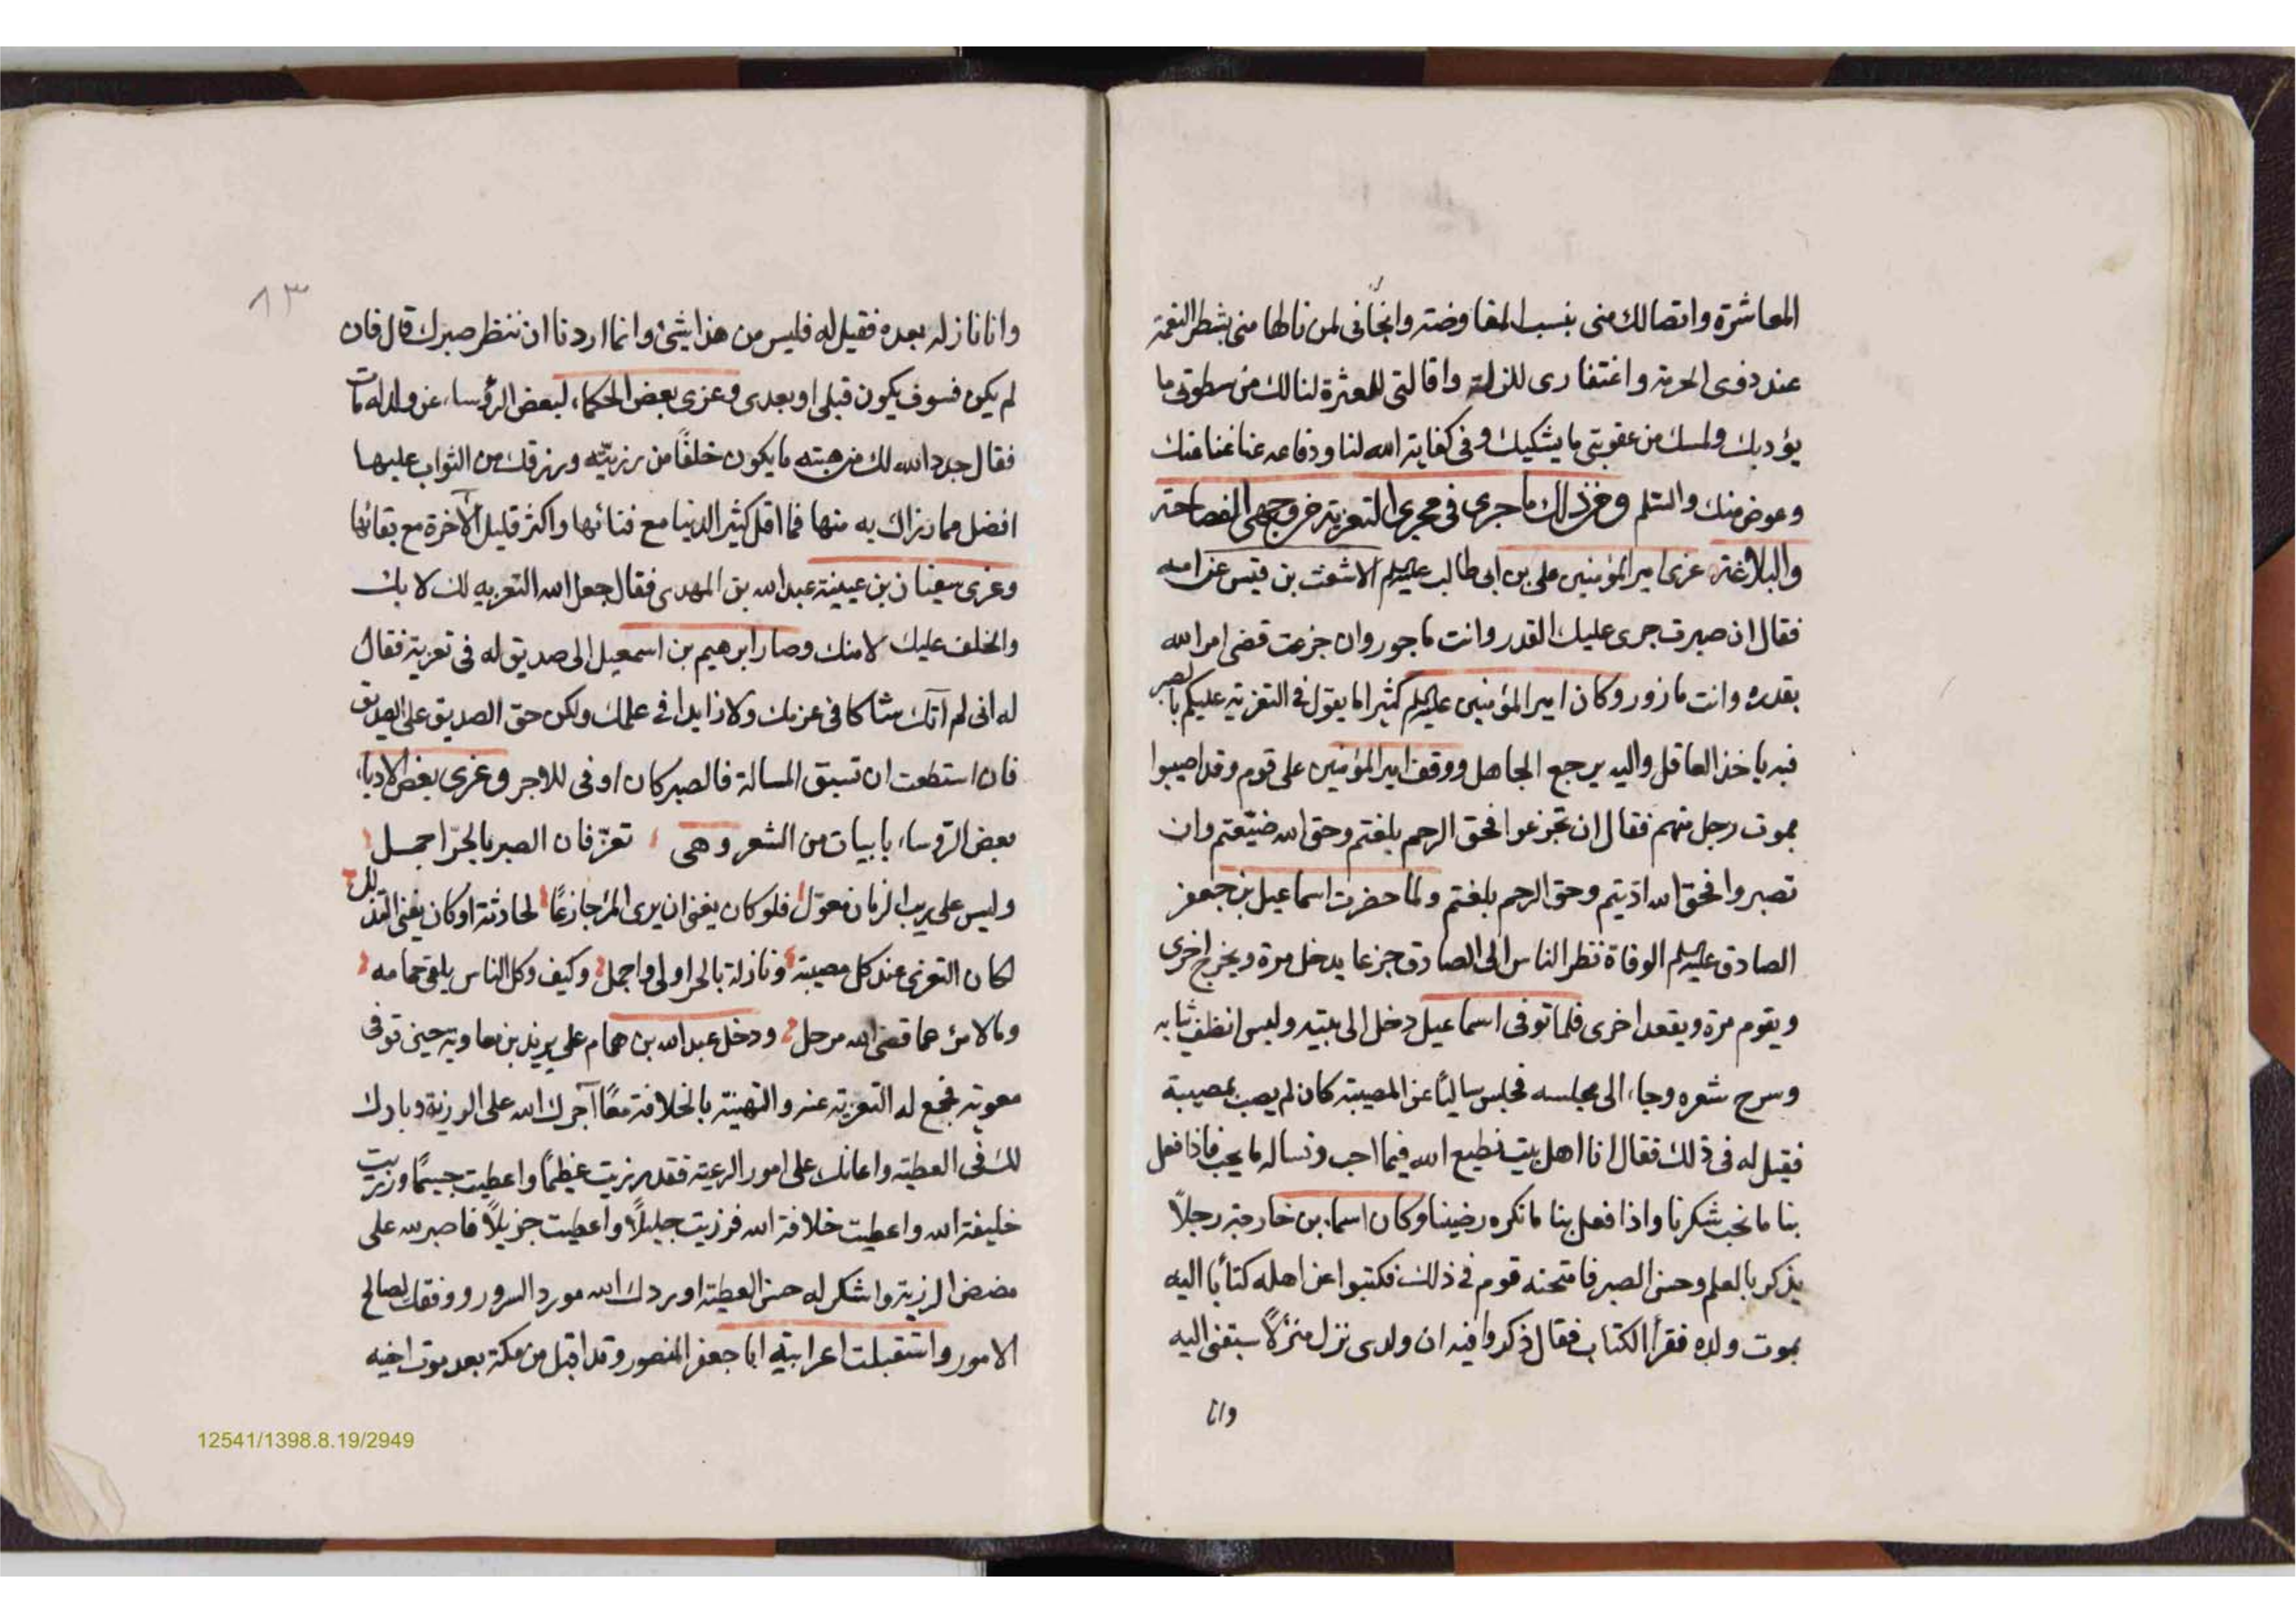 المعاشرة واتصالك منى بنسب المفاوضة وانجافى لمن نالها منى بشطر النعمة
عند دوى الحرمة واغتفارى للزلة واقالتى للعثرة لنالك من سطوتى ما
يؤدبك ولمسك من عقوبتى ما يشكيك وفى كفاية الله لنا ودفاعه عنا غنا عنك
وعوض منك والسلم ومن ذلك ما جرى فى مجرى التعزية خروجهى الفصاحة
والبلاغة عزى امير المؤمنين على بن ابى طالب عليه السلم الاشعث بن قيس عن امه
فقال ان صبرت جرى عليك القدر وانت ماجور وان جزعت قضى امر الله
بقدره وانت مازور وكان امير المؤمنين عليه السلم كثيرا ما يقول فى التعزية عليكم بالصبر
فبه ياخذ العاقل واليه يرجع الجاهل ووقف امير المؤمنين على قوم وقد اصيبوا
بموت رجل منهم فقال ان تجزعوا فحق الرحم بلغتم وحق الله ضيّعتم وان
تصبروا فحق الله ادّيتم وحق الرحم بلغتم ولما حضرت اسماعيل بن جعفر
الصادق عليه السلم الوفاة نظر الناس الى الصادق جزعا يدخل مرة ويخرج اخرى
ويقوم مرة ويقعد اخرى فلما توفى اسماعيل دخل الى بيته ولبس انظف ثيابه
وسرح شعره وجاء الى مجلسه فجلس ساليًا عن المصيبة كان لم يصب بمصيبة
فقيل له فى ذلك فقال انا اهل بيت نطيع الله فيما احب ونساله ما يحب فاذا فعل
بنا ما نحب شكرنا واذا فعل بنا ما نكره رضينا وكان اسماء بن خارجة رجلاً
يذكر بالعلم وحسن الصبر فامتحنه قوم فى ذلك فكتبوا عن اهله كتابًا اليه
بموت ولده فقرأ الكتاب فقال ذكروا فيه ان ولدى نزل منزلاً سبقنى اليه
وانا
٨٣
وانا نازله بعده فقيل له فليس من هذا شئ وانما اردنا ان ننظر صبرك قال فان
لم يكن فسوف يكون قبلى او بعدى وعزى بعض الحكماء لبعض الرؤساء عن ولد له مات
فقال جدد الله لك من هبته ما يكون خلفًا من رزيّته ويرزقك من الثواب عليها
افضل مما رزاك به منها فما اقل كثير الدنيا مع فنائها واكثر قليل الآخرة مع بقائها
وعزى سفيان بن عيينة عبد الله بن المهدى فقال جعل الله التعزيه لك لا بك
والخلف عليك لا منك وصار ابرهيم بن اسمعيل الى صديق له فى تعزية فقال
له انى لم آتك شاكا فى عزمك ولا زايدا فى علمك ولكن حق الصديق على الصديق
فان استطعت ان تسبق المسالة فالصبر كان اوفى للاجر وعزى بعض الادباء
بعض الرؤساء بابيات من الشعر وهى تعزّ فان الصبر بالحرّ اجمل
وليس على ريب الزمان معوّل فلو كان يغنى ان يرى المرء جازعًا لحادثة او كان يغنى التذلل
لكان التعزى عند كل مصيبة ونازلة بالحر اولى واجمل وكيف وكل الناس يلقى حمامه
وما لامرئ مما قضى الله مرحل ودخل عبد الله بن همام على يزيد بن معاويه حين توفى
معوية فجمع له التعزية عنه والتهنية بالخلافة معًا آجرك الله على الرزية وبارك
لك فى العطية واعانك على امور الرعية فقد رزيت عظيمًا واعطيت جسيمًا ورزيت
خليفة الله واعطيت خلافة الله فرزيت جليلاً واعطيت جزيلاً فاصبر لله على
مضض الرزية واشكر له حسن العطية اوردك الله مورد السرور ووفقك لصالح
الامور واستقبلت اعرابية ابا جعفر المنصور وقد اقبل من مكة بعد موت اخيه
12541/1398.8.19/2949